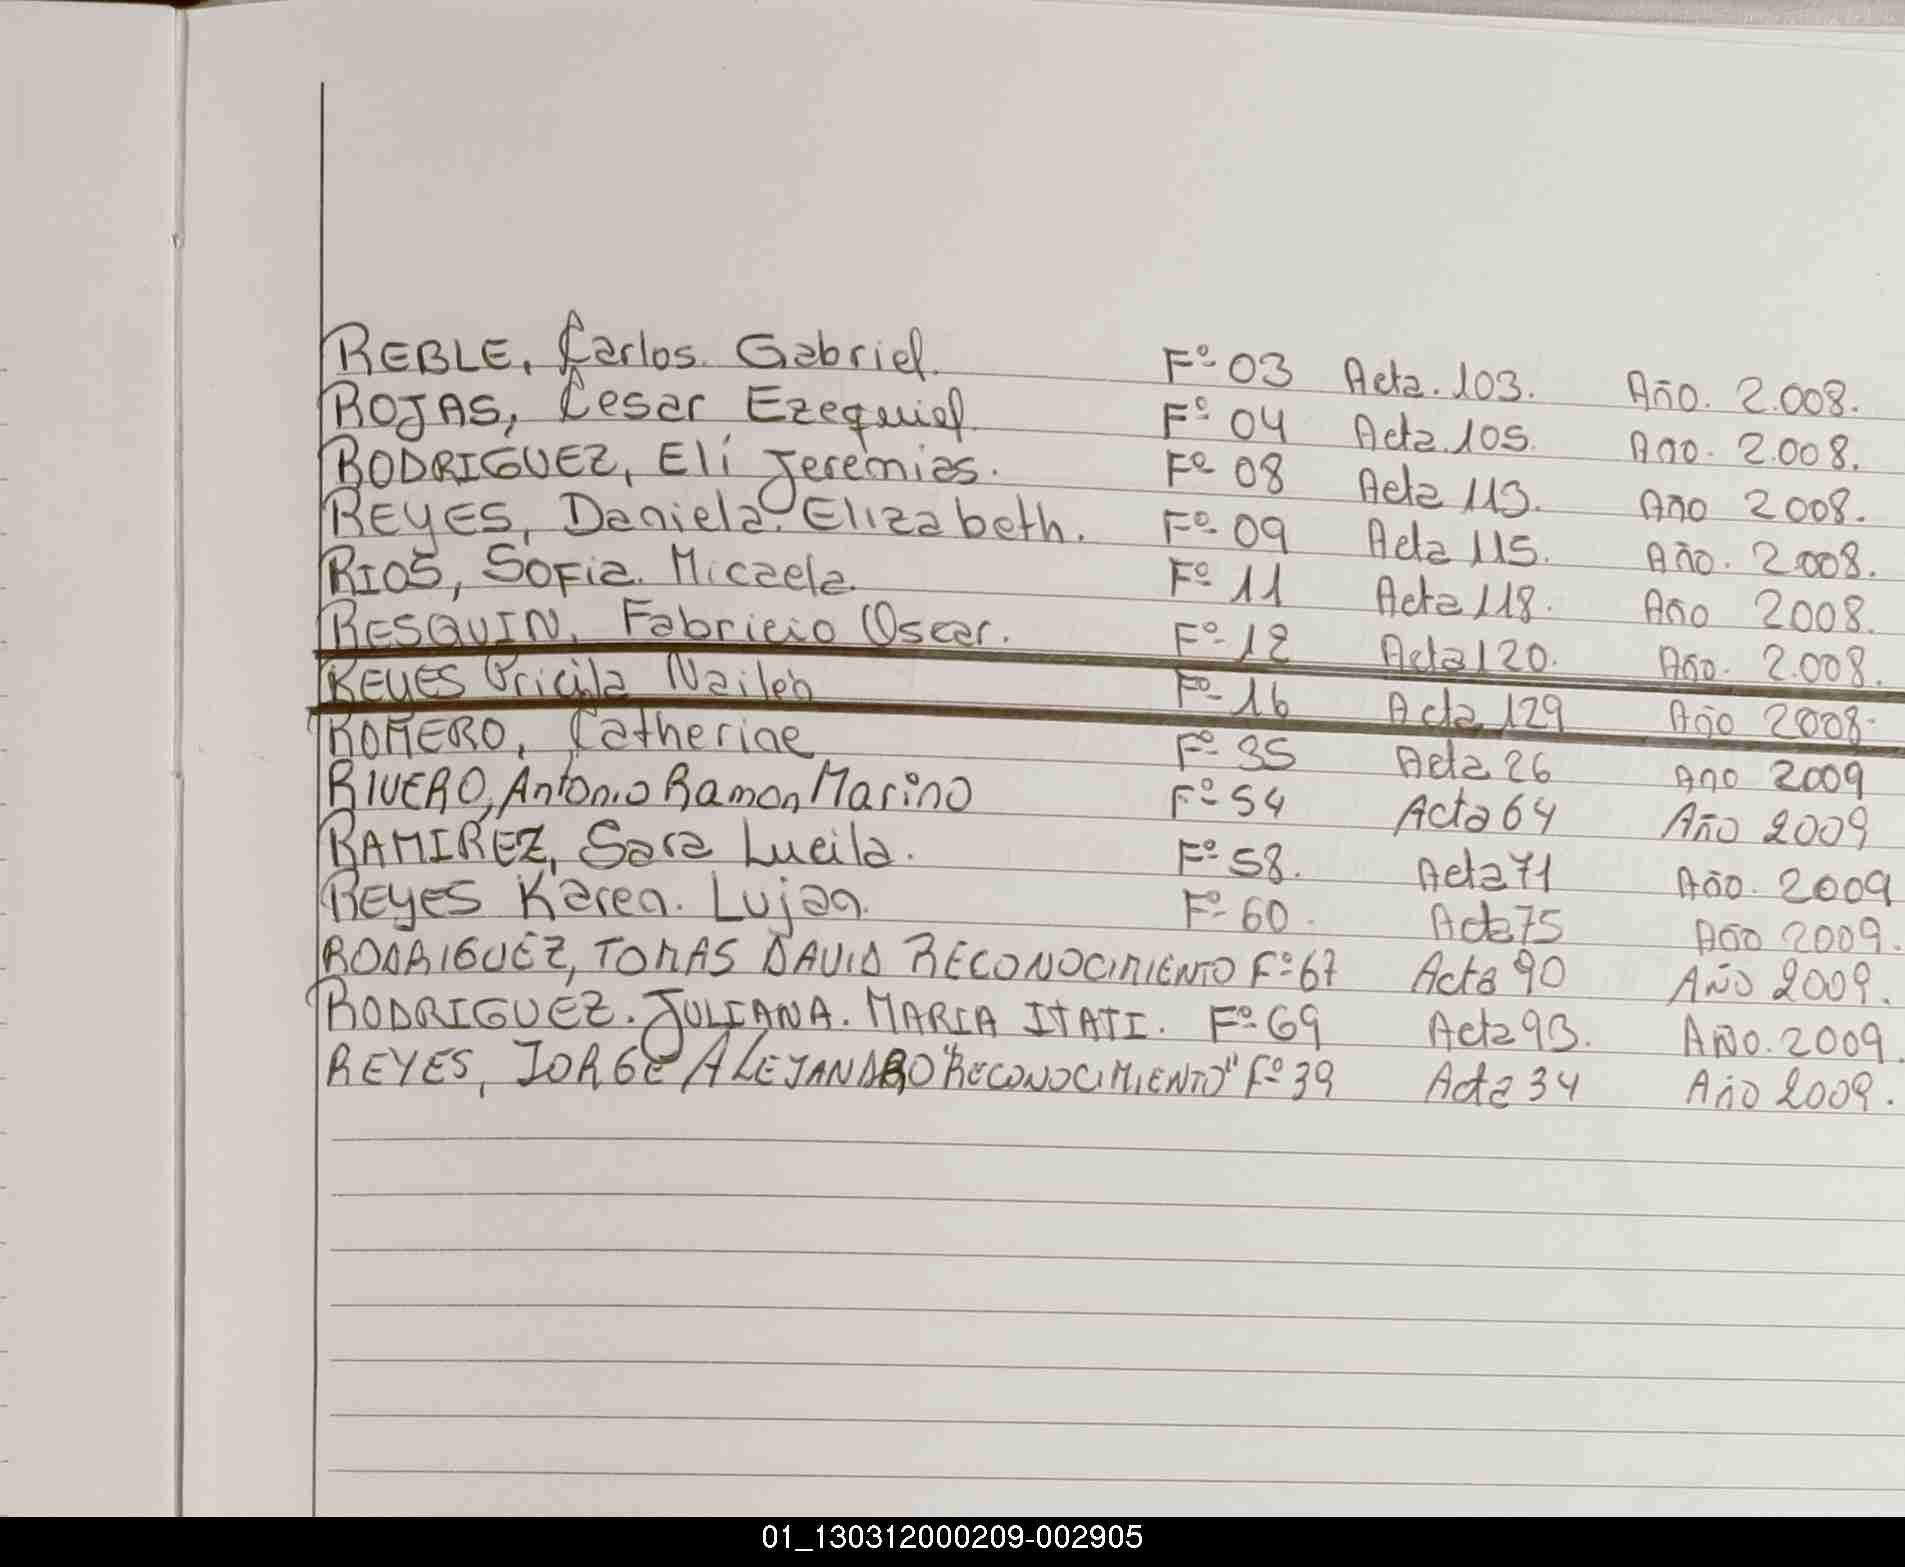 REBLE, Carlos. Gabriel. Fº 03 Acta. 103. Año. 2.008.
ROJAS, Cesar Ezequiel. Fº 04 Acta. 105. Año. 2.008.
RODRIGUEZ, Elí Jeremias. Fº 08 Acta 113. Año 2008.
REYES, Daniela. Elizabeth. Fº 09 Acta 115. Año. 2.008.
RIOS, Sofia. Micaela. Fº 11 Acta 118. Año 2008.
RESQUIN, Fabricio Oscar. Fº 12 Acta 120. Año. 2.008.
REYES Pricila Nailen Fº 16 Acta 129 Año 2008.
ROMERO, Catherine Fº 35 Acta 26 Año 2009
RIVERO, Antonio Ramon Marino Fº 54 Acta 64 Año 2009
RAMIREZ, Sara Lucila. Fº 58. Acta 71 Año. 2009
REYES Karen. Lujan. Fº 60. Acta 75 Año 2009.
RODRIGUEZ, TOMAS DAVID RECONOCIMIENTO Fº 67 Acta 90 AÑO 2009.
RODRIGUEZ. JULIANA. MARIA ITATI. Fº 69 Acta 93. AÑO. 2009.
REYES, JORGE ALEJANDRO "RECONOCIMIENTO" Fº 39 Acta 34 Año 2009.
01_130312000209-002905